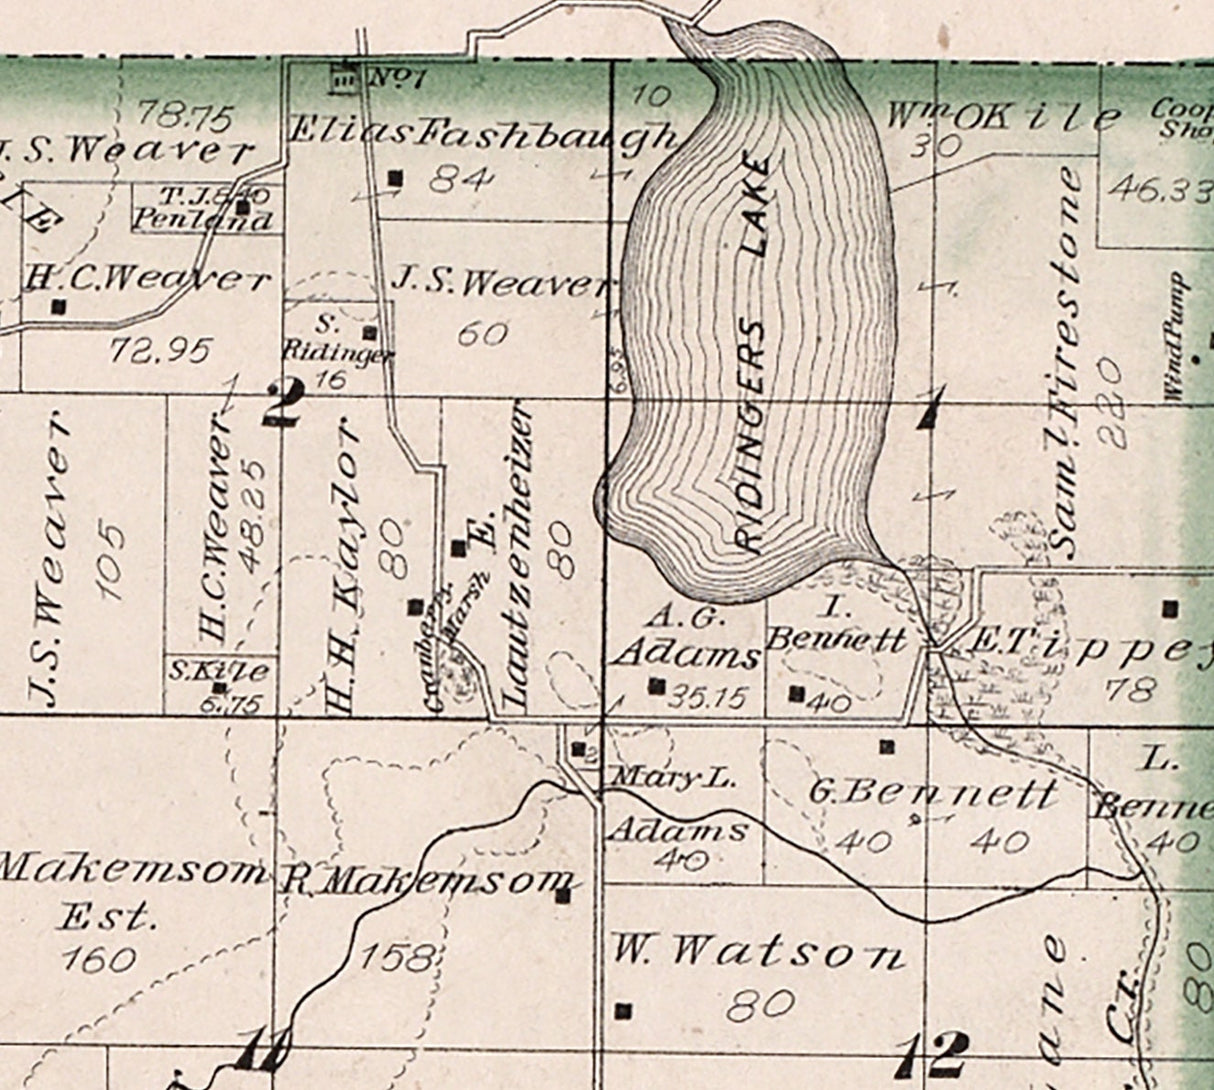 No 1
78.75
J. S. Weaver
Elias Fashbaugh
84
10
Wm OKile
30
46.33
T. J.
Penland
H. C. Weaver
72.95
J. S. Weaver
60
S.
Ridinger
16
6.95
RIDINGERS LAKE
Saml. Firestone
220
Wind Pump
2
1
J. S. Weaver
105
H. C. Weaver
48.25
H. H. Kaylor
80
E.
Lautzenheizer
80
Cranberry
Marsh
S. Kile
6.75
A. G.
Adams
35.15
I.
Bennett
40
E. Tippey
78
2
Mary L.
Adams
40
G. Bennett
40
40
L.
40
Makemsom
Est.
160
R. Makemsom
158
W. Watson
80
80
Cr.
11
12